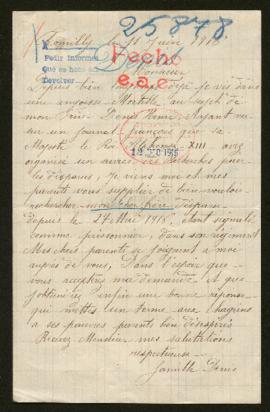 25878
Romilly le 11 Juin 1918
Pedir informes
que se hace en
Devolver
Fecho
e.a.e.
Monsieur
Depuis bien longtemps déjà je vis dans
une angoisse Mortelle au sujet de
mon frère Denis Henri. Ayant vu
sur un journal français que sa
Majesté le Roi Alphonse XIII avez
organisé un service des Recherches pour
les disparus, Je viens moi et mes
parents vous supplier de bien vouloir
rechercher mon cher frère Disparu
depuis le 27 Mai 1918, étant signalé
comme prisonnier, dans son régiment
Mes chers parents se joignent à moi
auprès de vous, Dans l'espoir que
vous accepterez ma demande. Et que
j'obtiendrez enfin une bonne réponse
qui mettes un terme aux chagrins
à ses pauvres parents bien désespérés
Recevez Monsieur mes salutations
respectueuses
Denis